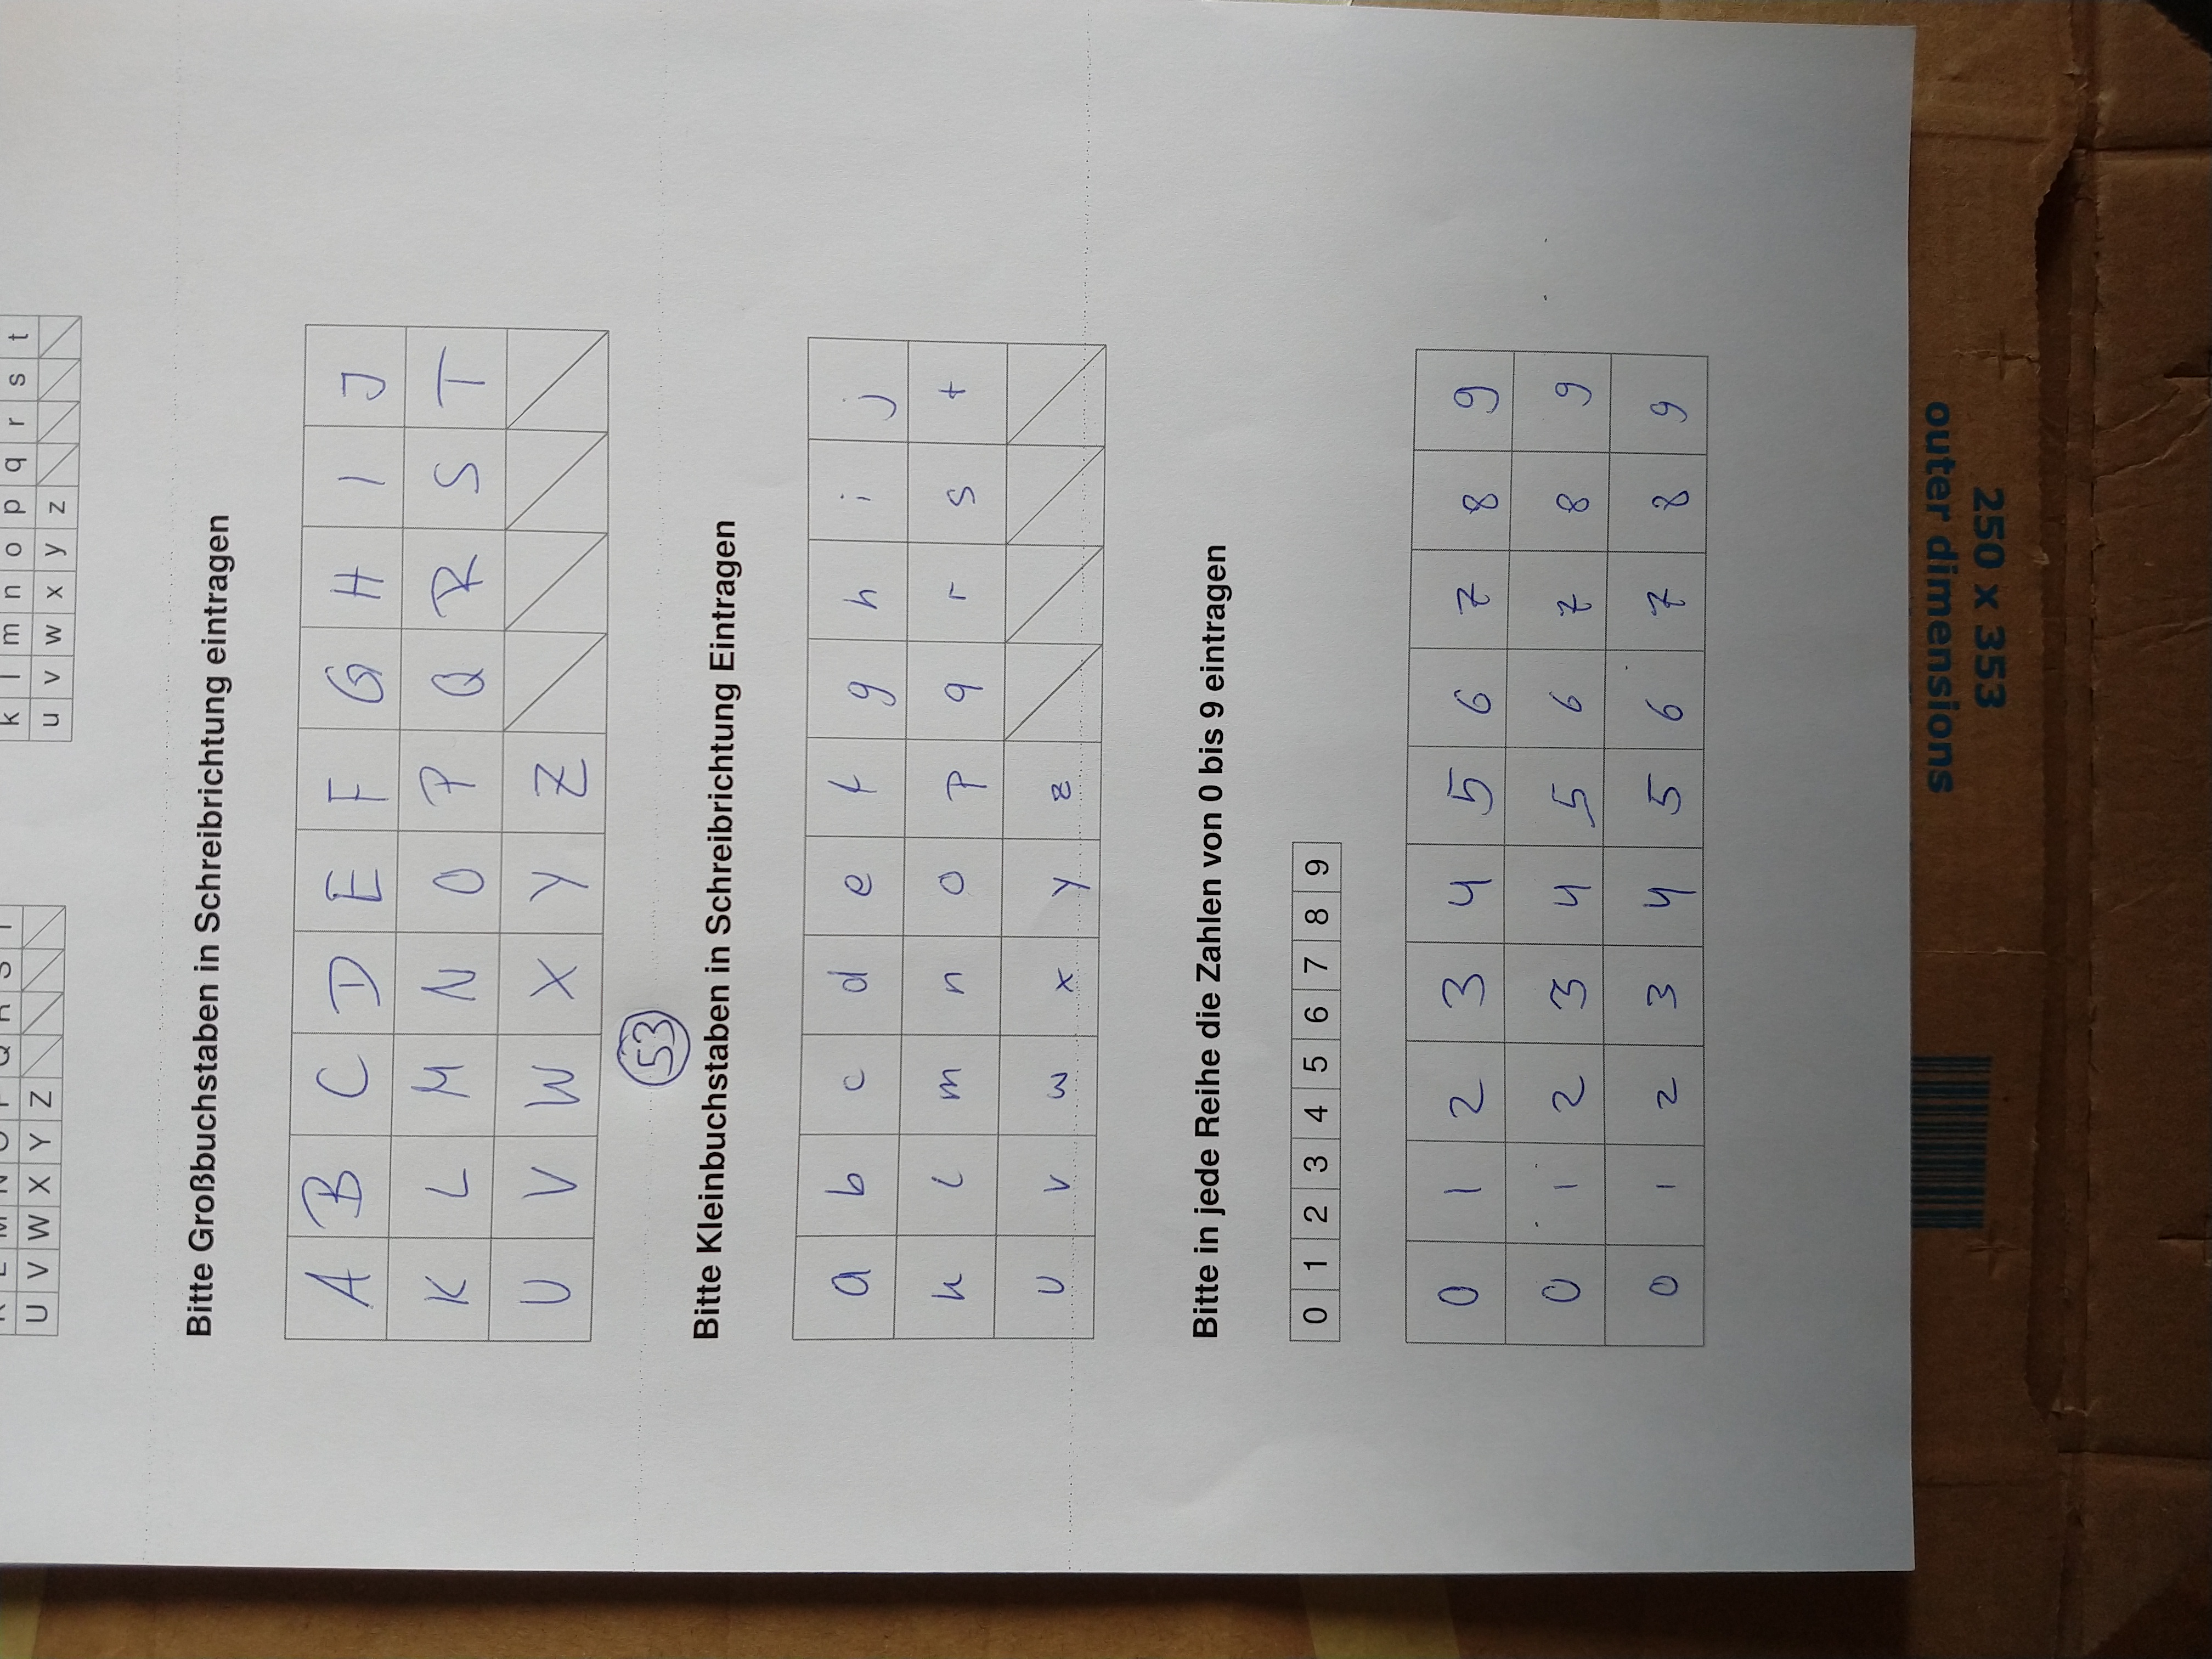 K L M N O P Q R S T
U V W X Y Z
k l m n o p q r s t
u v w x y z
Bitte Großbuchstaben in Schreibrichtung eintragen
A B C D E F G H I J
K L M N O P Q R S T
U V W X Y Z
53
Bitte Kleinbuchstaben in Schreibrichtung Eintragen
a b c d e f g h i j
k l m n o p q r s t
u v w x y z
Bitte in jede Reihe die Zahlen von 0 bis 9 eintragen
0 1 2 3 4 5 6 7 8 9
0 1 2 3 4 5 6 7 8 9
0 1 2 3 4 5 6 7 8 9
0 1 2 3 4 5 6 7 8 9
250 x 353
outer dimensions